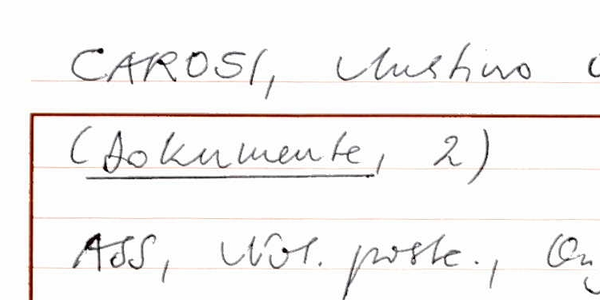 CAROSI, Austino
(Dokumente, 2)
ASS, Not. poste.,